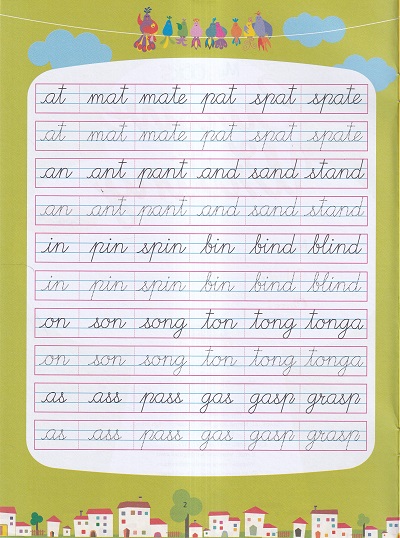 at mat mate pat spat spate
at mat mate pat spat spate
an ant pant and sand stand
an ant pant and sand stand
in pin spin bin bind blind
in pin spin bin bind blind
on son song ton tong tonga
on son song ton tong tonga
as ass pass gas gasp grasp
as ass pass gas gasp grasp
2